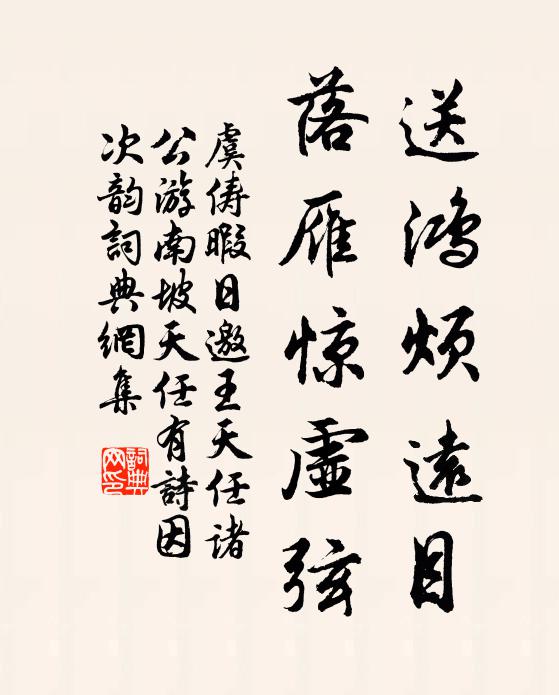 送鸿烦遠目
落雁惊虚弦
虞俦暇日邀王天任诸
公游南坡天任有詩因
次韵詞典網集
詞典网印